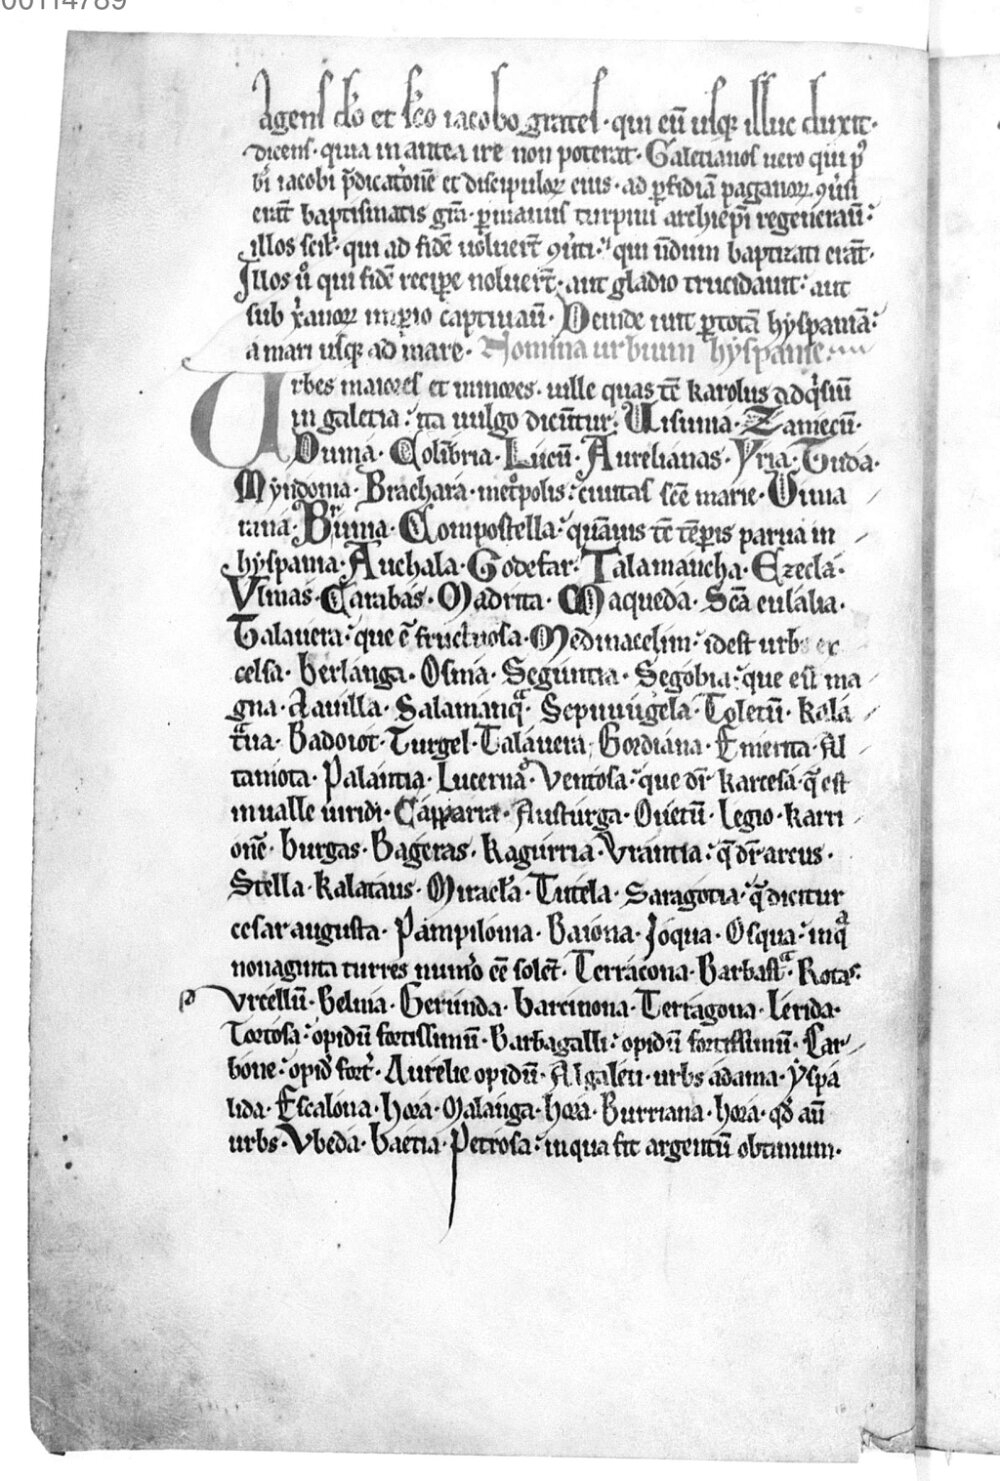 00114789
Agens dō et sc̄o iacobo grates · qui eū usq; illuc duxit ·
dicens · quia in antea ire non poterat · Galecianos uero qui p̄
bi iacobi p̄dicat̄onē et discipuloꝝ eius · ad ꝑfidiā paganoꝝ ꝯuersi
erāt baptismatis grā · ꝑ manus turpini archiep̄i regenerauit̄ ·
illos scil · qui ad fidē uoluer̄t ꝯuerti · qui nōdum baptizati erāt ·
Illos ů qui fidē reciꝑe noluer̄t · aut gladio trucidauit · aut
sub xp̄ianoꝝ imꝑio captiuauit̄ · Deinde iuit ꝑ totā hyspaniā ·
a mari usq; ad mare · Nomina urbium hyspanie ·
Urbes maiores et minores · uille quas tc̄ karolus adq̇siuit̄
in galecia · ita uulgo dicūtur · Uisunia · Lamecū ·
Dumia · Colībria · Lucū · Aurelianas · Yria · Tuda ·
Myndonia · Brachara · met̊polis · ciuitas sc̄e marie · Uima
rana · Brunia · Compostella · quāuis tc̄ tēꝑis parua in
hyspania · Auchala · Godefar · Talamancha · Ezecla ·
Ulmas · Carabas · Madrita · Maqueda · Sc̄a eulalia ·
Talauera · que ē fructuosa · Medinacelim · id est urbs ex
celsa · berlanga · Osma · Seguntia · Segobia · que est ma
gna · Aauilla · Salamanqͣ · Sepuuugela · Toletū · kala
tͣua · Badoiot · Turgel · Talauera · Gordiana · Emerita · Al
tamota · Palantia · Lucernā · Ventosa · que dr̄ karcesa · q̄ est
in ualle uiridi · Capparia · Austurga · Ouetū · legio · karri
onē · burgas · Bageras · kagurria · Urantia · q̄ dr̄ arcus ·
Stella · kalataus · Miracla · Tutela · Saragotia · q̄ dicitur
cesar augusta · Pampilonia · Baiona · Ioqua · Osqua · in qͣ
nonaginta turres num̄o ēe solet̄ · Terracona · Barbastͣ · Rotas ·
Urcellū · Belnia · Gerunda · barcinona · Terragona · lerida ·
Tortosa · opidū fortissimū · Barbagalli · opidū fortissimū · Car
bone · opid̄ fort̄ · Aurelie opidū · Algaleti · urbs adama · yspa
lida · Escalona · hora · Malanga · hora · Burriana · hora · qd̄ aū
urbs · Ubeda · baetia · Petrosa · in qua fit argentū obtimum ·